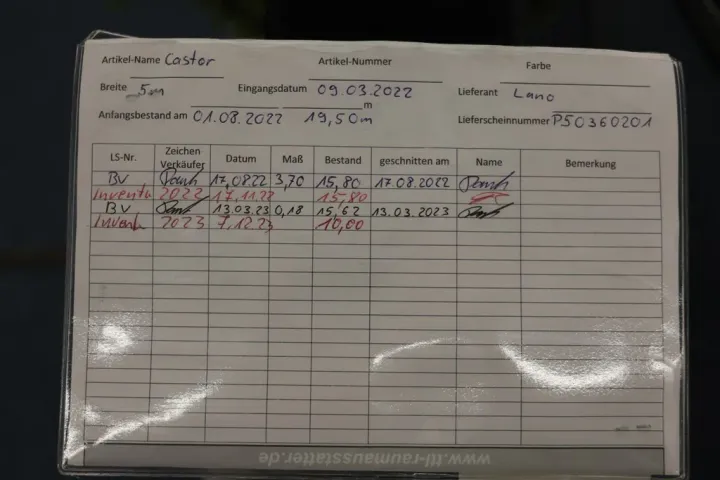 Artikel-Name Castor Artikel-Nummer Farbe
Breite 5m Eingangsdatum 09.03.2022 Lieferant Lano
Anfangsbestand am 01.08.2022 19,50m m Lieferscheinnummer P50360201
LS-Nr. Zeichen Verkäufer Datum Maß Bestand geschnitten am Name Bemerkung
BV 17.08.22 3,70 15,80 17.08.2022
Inventu 2022 17.11.22 15,80
BV 13.03.23 0,18 15,62 13.03.2023
Invent 2023 7.12.23 10,00
www.tl-raumausstatter.de